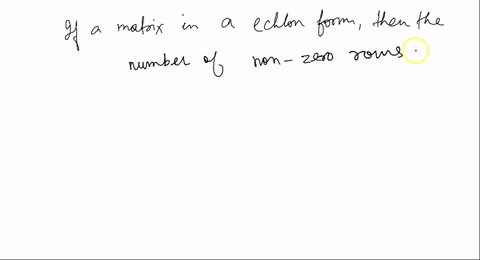 If a matrix in a echlon form, then the
number of non-zero rows